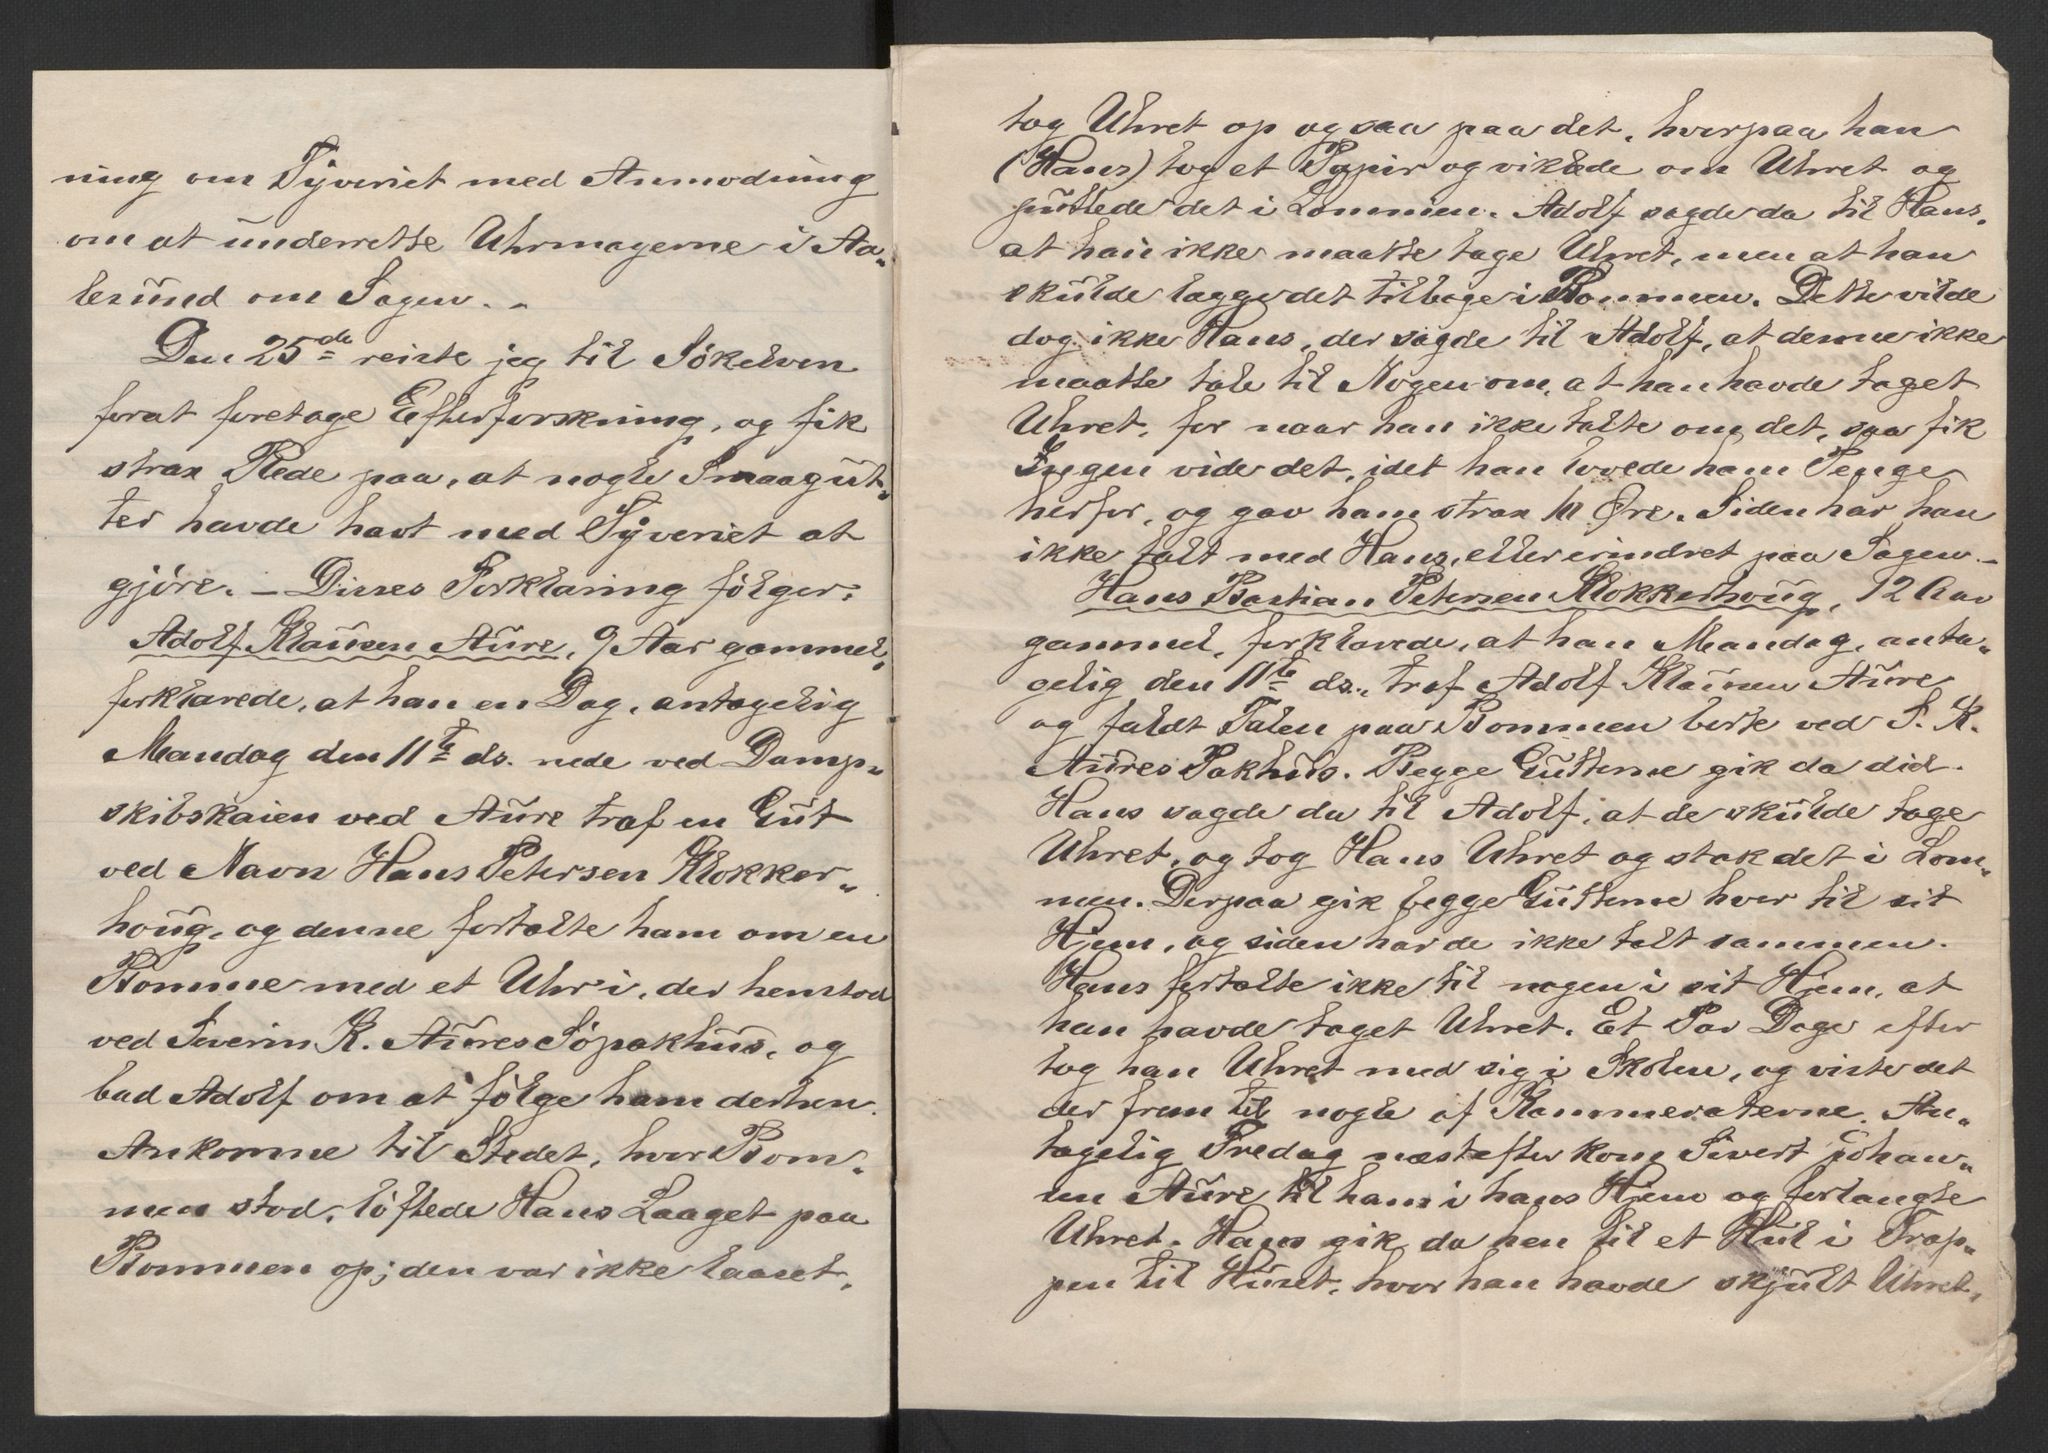 ning om Tyveriet med Anmodning
om at underrette Uhrmagerne i Aa„
lesund om Sagen. -
Den 25de reiste jeg til Sökelven
forat foretage Efterforskning, og fik
strax Rede paa, at nogle Smaagut„
ter havde havt med Tyveriet at
gjöre. – Disses Forklaring fölger:
Adolf Klausen Aure, 9 Aar gammel,
forklarede, at han en Dag, antagelig
Mandag den 11te ds. nede ved Damp„
skibskaien ved Aure traf en Gut
ved Navn Hans Petersen Klokker„
houg, og denne fortalte ham om en
Bomme med et Uhr i, der henstod
ved Severin K. Aures Söpakhus, og
bad Adolf om at fölge ham derhen.
Ankomne til Stedet, hvor Bom„
men stod, löftede Hans Laaget paa
Bommen op; den var ikke laaset.
tog Uhret op og saa paa det, hvorpaa han
(Hans) tog et Papir og viklede om Uhret og
puttede det i Lommen. Adolf sagde da til Hans,
at han ikke maatte tage Uhret, men at han
skulde lægge det tilbage i Bommen. Dette vilde
dog ikke Hans, der sagde til Adolf, at denne ikke
maatte tale til Nogen om, at han havde taget
Uhret, for naar han ikke talte om det, saa fik
Ingen vide det, idet han lovede ham Penge
herfor, og gav ham strax 10 Øre. Siden har han
ikke talt med Hans, eller erindret paa Sagen. –
Hans Bastian Petersen Klokkerhoug, 12 Aar
gammel, forklarede, at han Mandag, anta„
gelig den 11te ds., traf Adolf Klausen Aure
og faldt Talen paa Bommen borte ved S. K.
Aures Pakhus. Begge Gutterne gik da did.
Hans sagde da til Adolf, at de skulde tage
Uhret, og tog Hans Uhret og stak det i Lom„
men. Derpaa gik begge Gutterne hver til sit
Hjem, og siden har de ikke talt sammen.
Hans fortalte ikke til nogen i sit Hjem, at
han havde taget Uhret. Et Par Dage efter
tog han Uhret med sig i Skolen, og viste det
der frem til nogle af Kammeraterne. An„
tagelig Fredag næstefter kom Sivert Johan„
sen Aure til ham i hans Hjem og forlangte
Uhret. Hans gik da hen til et Hul i Trap„
pen til Huset, hvor han havde skjult Uhret,